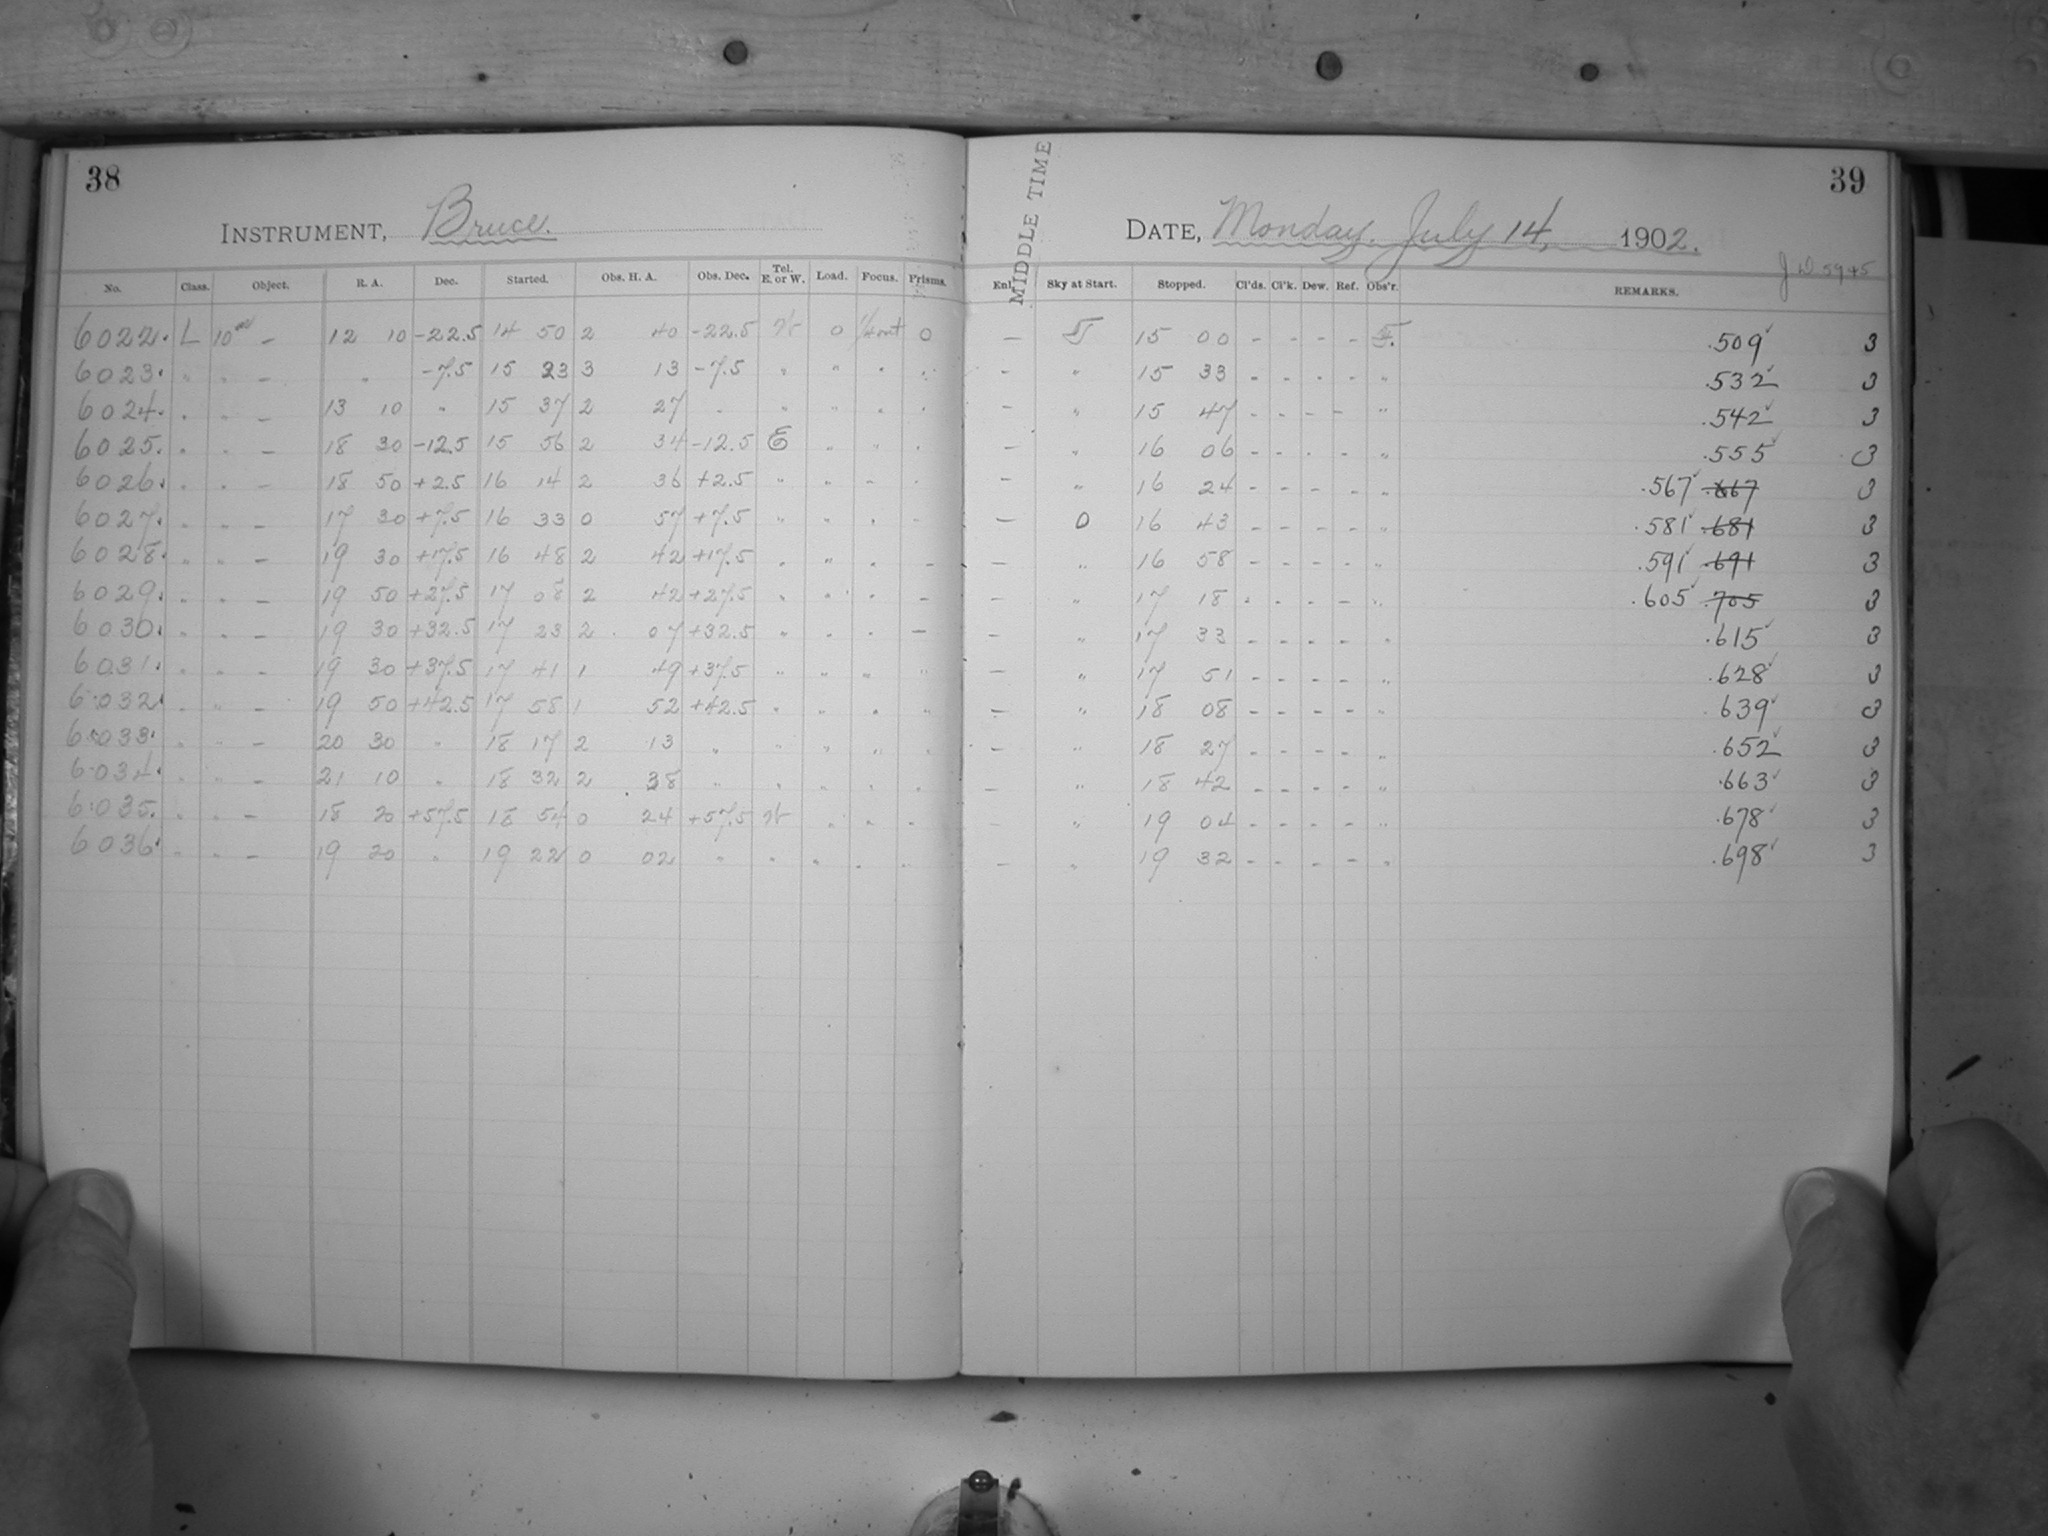 38
INSTRUMENT, Bruce.
No. Class. Object. R. A. Dec. Started. Obs. H. A. Obs. Dec. Tel. E. or W. Load. Focus. Prisms.
6022. L 10m — 12 10 -22.5 14 50 2 40 -22.5 W 0 out 0
6023. " " — " -7.5 15 23 3 13 -7.5 " " " "
6024. " " — 13 10 " 15 37 2 27 " " " " "
6025. " " — 18 30 -12.5 15 56 2 34 -12.5 E " " "
6026. " " — 18 50 +2.5 16 14 2 36 +2.5 " " " "
6027. " " — 17 30 +7.5 16 33 0 57 +7.5 " " " "
6028. " " — 19 30 +17.5 16 48 2 42 +17.5 " " " —
6029. " " — 19 50 +27.5 17 08 2 42 +27.5 " " " —
6030. " " — 19 30 +32.5 17 23 2 07 +32.5 " " " —
6031. " " — 19 30 +37.5 17 41 1 49 +37.5 " " " "
6032. " " — 19 50 +42.5 17 58 1 52 +42.5 " " " "
6033. " " — 20 30 " 18 17 2 13 " " " " "
6034. " " — 21 10 " 18 32 2 38 " " " " "
6035. " " — 18 20 +57.5 18 54 0 24 +57.5 W " " "
6036. " " — 19 20 " 19 22 0 02 " " " " "
39
MIDDLE TIME
DATE, Monday. July 14, 1902.
JD 5945
Enl. Sky at Start. Stopped. Cl'ds. Cl'k. Dew. Ref. Obs'r. REMARKS.
— 15 00 - - - - .509 3
— " 15 33 - - - - " .532 3
— " 15 47 - - - - " .542 3
— " 16 06 - - - - " .555 3
— " 16 24 - - - - " .567 .667 3
— 0 16 43 - - - - " .581 .681 3
— " 16 58 - - - - " .591 .691 3
— " 17 18 - - - - " .605 .705 3
— " 17 33 - - - - " .615 3
— " 17 51 - - - - " .628 3
— " 18 08 - - - - " .639 3
— " 18 27 - - - - " .652 3
— " 18 42 - - - - " .663 3
— " 19 04 - - - - " .678 3
— " 19 32 - - - - " .698 3